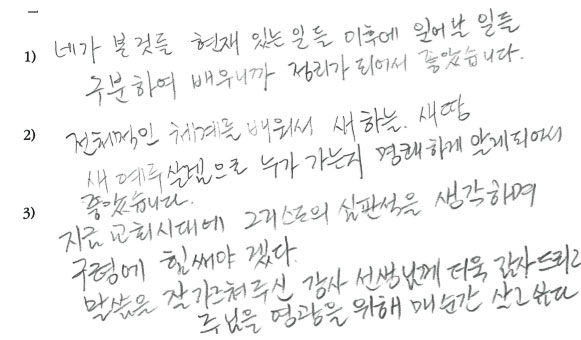 1) 네가 본것들 현재 있는일들 이후에 일어날 일들
구분하여 배우니까 정리가 되어서 좋았습니다.
2) 전체적인 체계를 배워서 새하늘. 새땅
새 예루살렘으로 누가 가는지 명쾌하게 알게되어서
좋았습니다.
3) 지금 교회시대에 그리스도의 심판석을 생각하며
구령에 힘써야 겠다.
말씀을 잘 가르쳐주신 강사 선생님께 더욱 감사드리고
주님을 영광을 위해 매순간 살고싶다